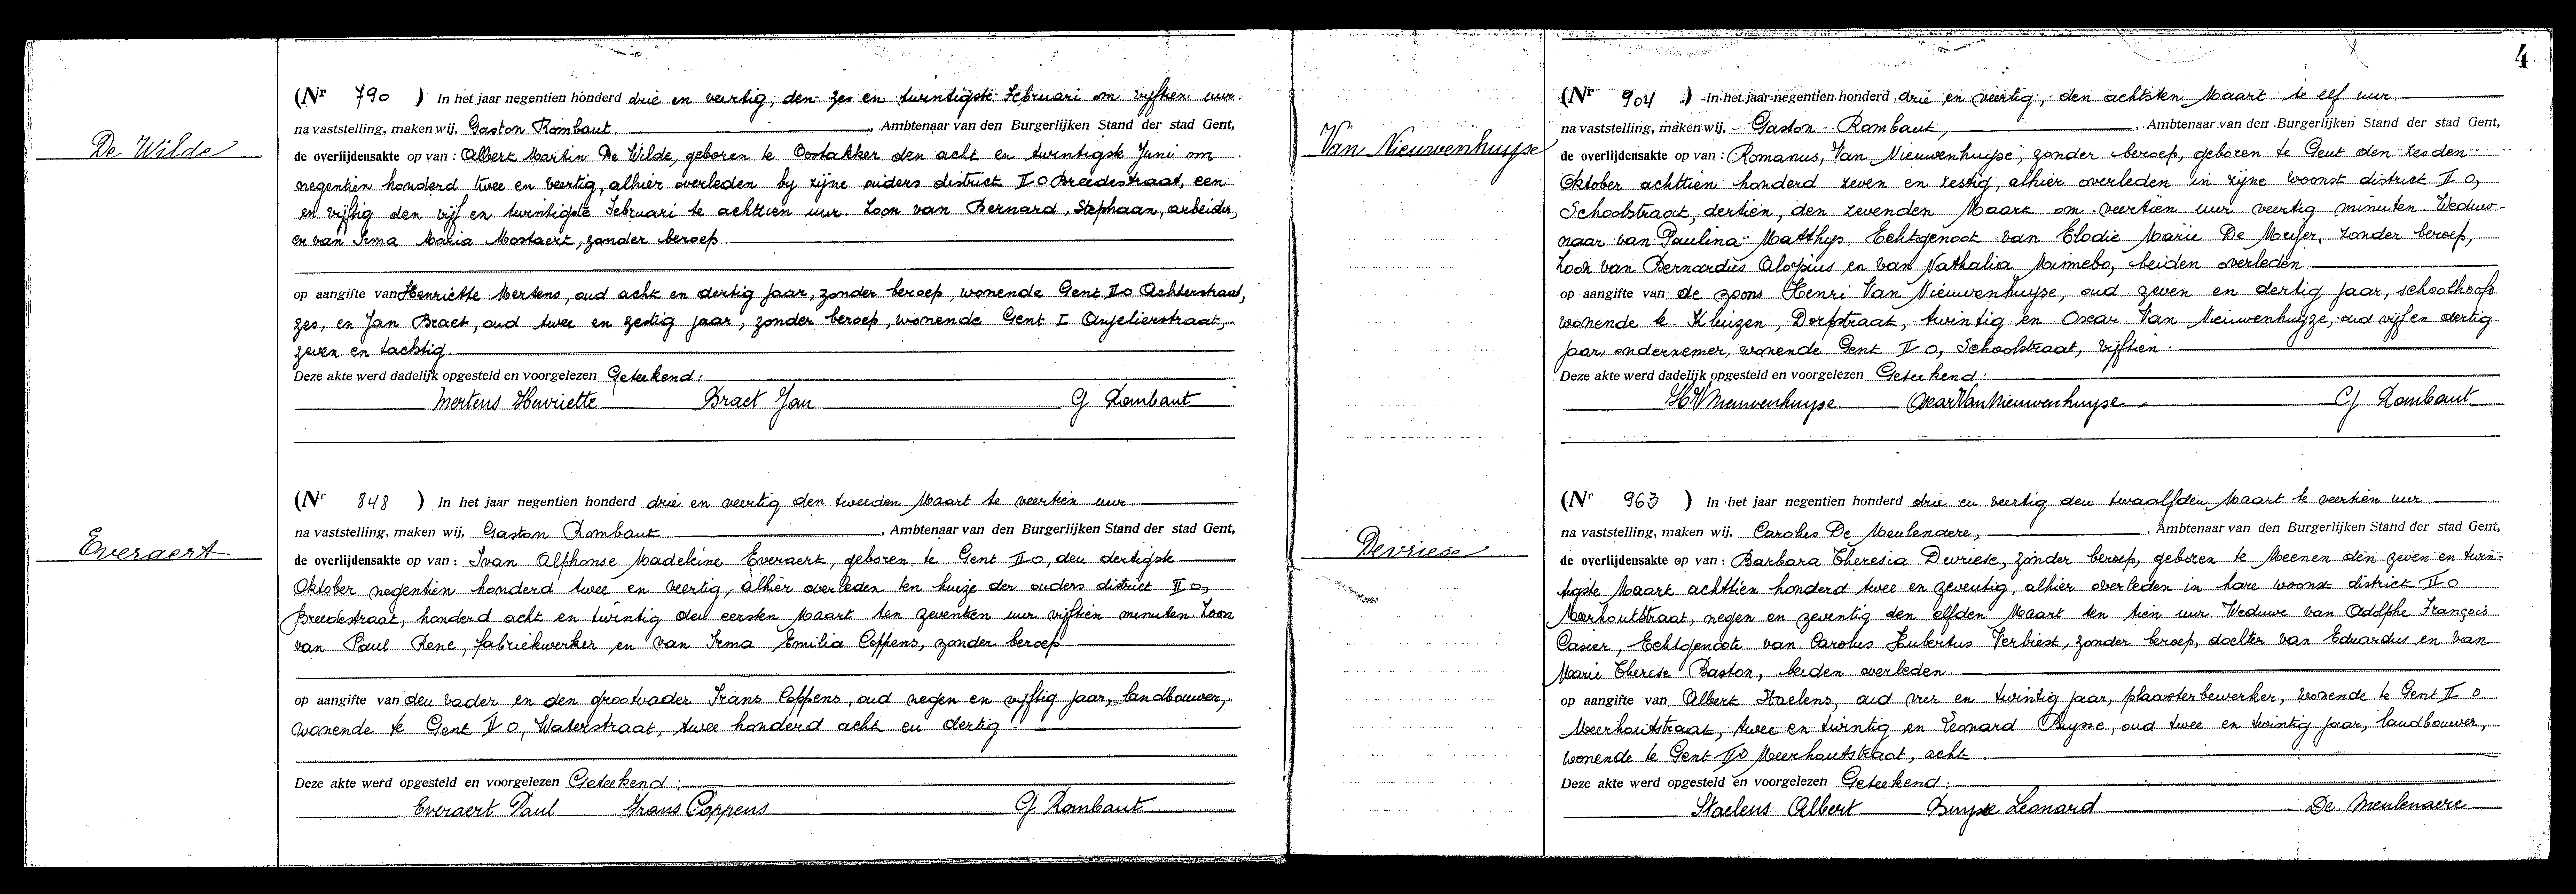 De Wilde
(Nr 790 ) In het jaar negentien honderd drie en veertig, den zes en twintigste Februari om vijftien uur.
na vaststelling, maken wij, Gaston Rombaut , Ambtenaar van den Burgerlijken Stand der stad Gent,
de overlijdensakte op van : Albert Martin De Wilde, geboren te Oostakker den acht en twintigste Juni om
negentien honderd twee en veertig, alhier overleden by zijne ouders district II O Breedestraat, een
en vijftig den vijf en twintigste Februari te achttien uur. Zoon van Bernard, Stephaan, arbeider,
en van Irma Maria Mostaert, zonder beroep
op aangifte van Henriette Mertens, oud acht en dertig jaar, zonder beroep, wonende Gent II O Achterstraat,
zes, en Jan Braet, oud twee en zestig jaar, zonder beroep, wonende Gent I Anjelierstraat,
zeven en tachtig.
Deze akte werd dadelijk opgesteld en voorgelezen Geteekend:
Mertens Henriette Braet Jan G Rombaut
Everaert
(Nr 848 ) In het jaar negentien honderd drie en veertig den tweeden Maart te veertien uur.
na vaststelling, maken wij, Gaston Rombaut , Ambtenaar van den Burgerlijken Stand der stad Gent,
de overlijdensakte op van : Ivan Alphonse Madeleine Everaert, geboren te Gent II O, den dertigste
Oktober negentien honderd twee en veertig, alhier overleden ten huize der ouders district II O,
Breedestraat, honderd acht en twintig den eersten Maart ten zeventien uur vijftien minuten Zoon
van Paul Rene, fabriekwerker en van Irma Emilia Coppens, zonder beroep
op aangifte van den vader en den grootvader Frans Coppens, oud negen en vijftig jaar, landbouwer,
wonende te Gent II O, Waterstraat, twee honderd acht en dertig.
Deze akte werd opgesteld en voorgelezen Geteekend:
Everaert Paul Frans Coppens G Rombaut
4
Van Nieuwenhuyse
(Nr 904 ) In het jaar negentien honderd drie en veertig, den achtsten Maart te elf uur.
na vaststelling, maken wij, Gaston Rombaut, , Ambtenaar van den Burgerlijken Stand der stad Gent,
de overlijdensakte op van : Romanus, Van Nieuwenhuyse, zonder beroep, geboren te Gent den zesden
Oktober achttien honderd zeven en zestig, alhier overleden in zijne woonst district II O,
Schoolstraat, dertien, den zevenden Maart om veertien uur veertig minuten. Weduw-
naar van Paulina Matthys Echtgenoot van Elodie Marie De Meyer, zonder beroep,
Zoon van Bernardus Aloysius en van Nathalia Minnebo, beiden overleden
op aangifte van de zoons Henri Van Nieuwenhuyse, oud zeven en dertig jaar, schoolhoofd
wonende te Kluizen, Dorpstraat, twintig en Oscar Van Nieuwenhuyze, oud vijf en dertig
jaar, ondernemer, wonende Gent II O, Schoolstraat, vijftien.
Deze akte werd dadelijk opgesteld en voorgelezen Geteekend:
HVNieuwenhuyse Oscar Van Nieuwenhuyse G Rombaut
Devriese
(Nr 963 ) In het jaar negentien honderd drie en veertig den twaalfden Maart te veertien uur
na vaststelling, maken wij, Carolus De Meulenaere, , Ambtenaar van den Burgerlijken Stand der stad Gent,
de overlijdensakte op van : Barbara Theresia Devriese, zonder beroep, geboren te Meenen den zeven en twin-
tigste Maart achttien honderd twee en zeventig, alhier overleden in hare woonst district II O
Meerhoutstraat, negen en zeventig den elfden Maart ten tien uur Weduwe van Adolphe François
Casier, Echtgenoote van Carolus Hubertus Verbiest, zonder beroep, dochter van Eduardus en van
Marie Therese Baston, beiden overleden
op aangifte van Albert Staelens, oud vier en twintig jaar, plaasterbewerker, wonende te Gent II O
Meerhoutstraat, twee en twintig en Leonard Buysse, oud twee en twintig jaar, landbouwer,
wonende te Gent II O Meerhoutstraat, acht.
Deze akte werd opgesteld en voorgelezen Geteekend:
Staelens Albert Buysse Leonard De Meulenaere